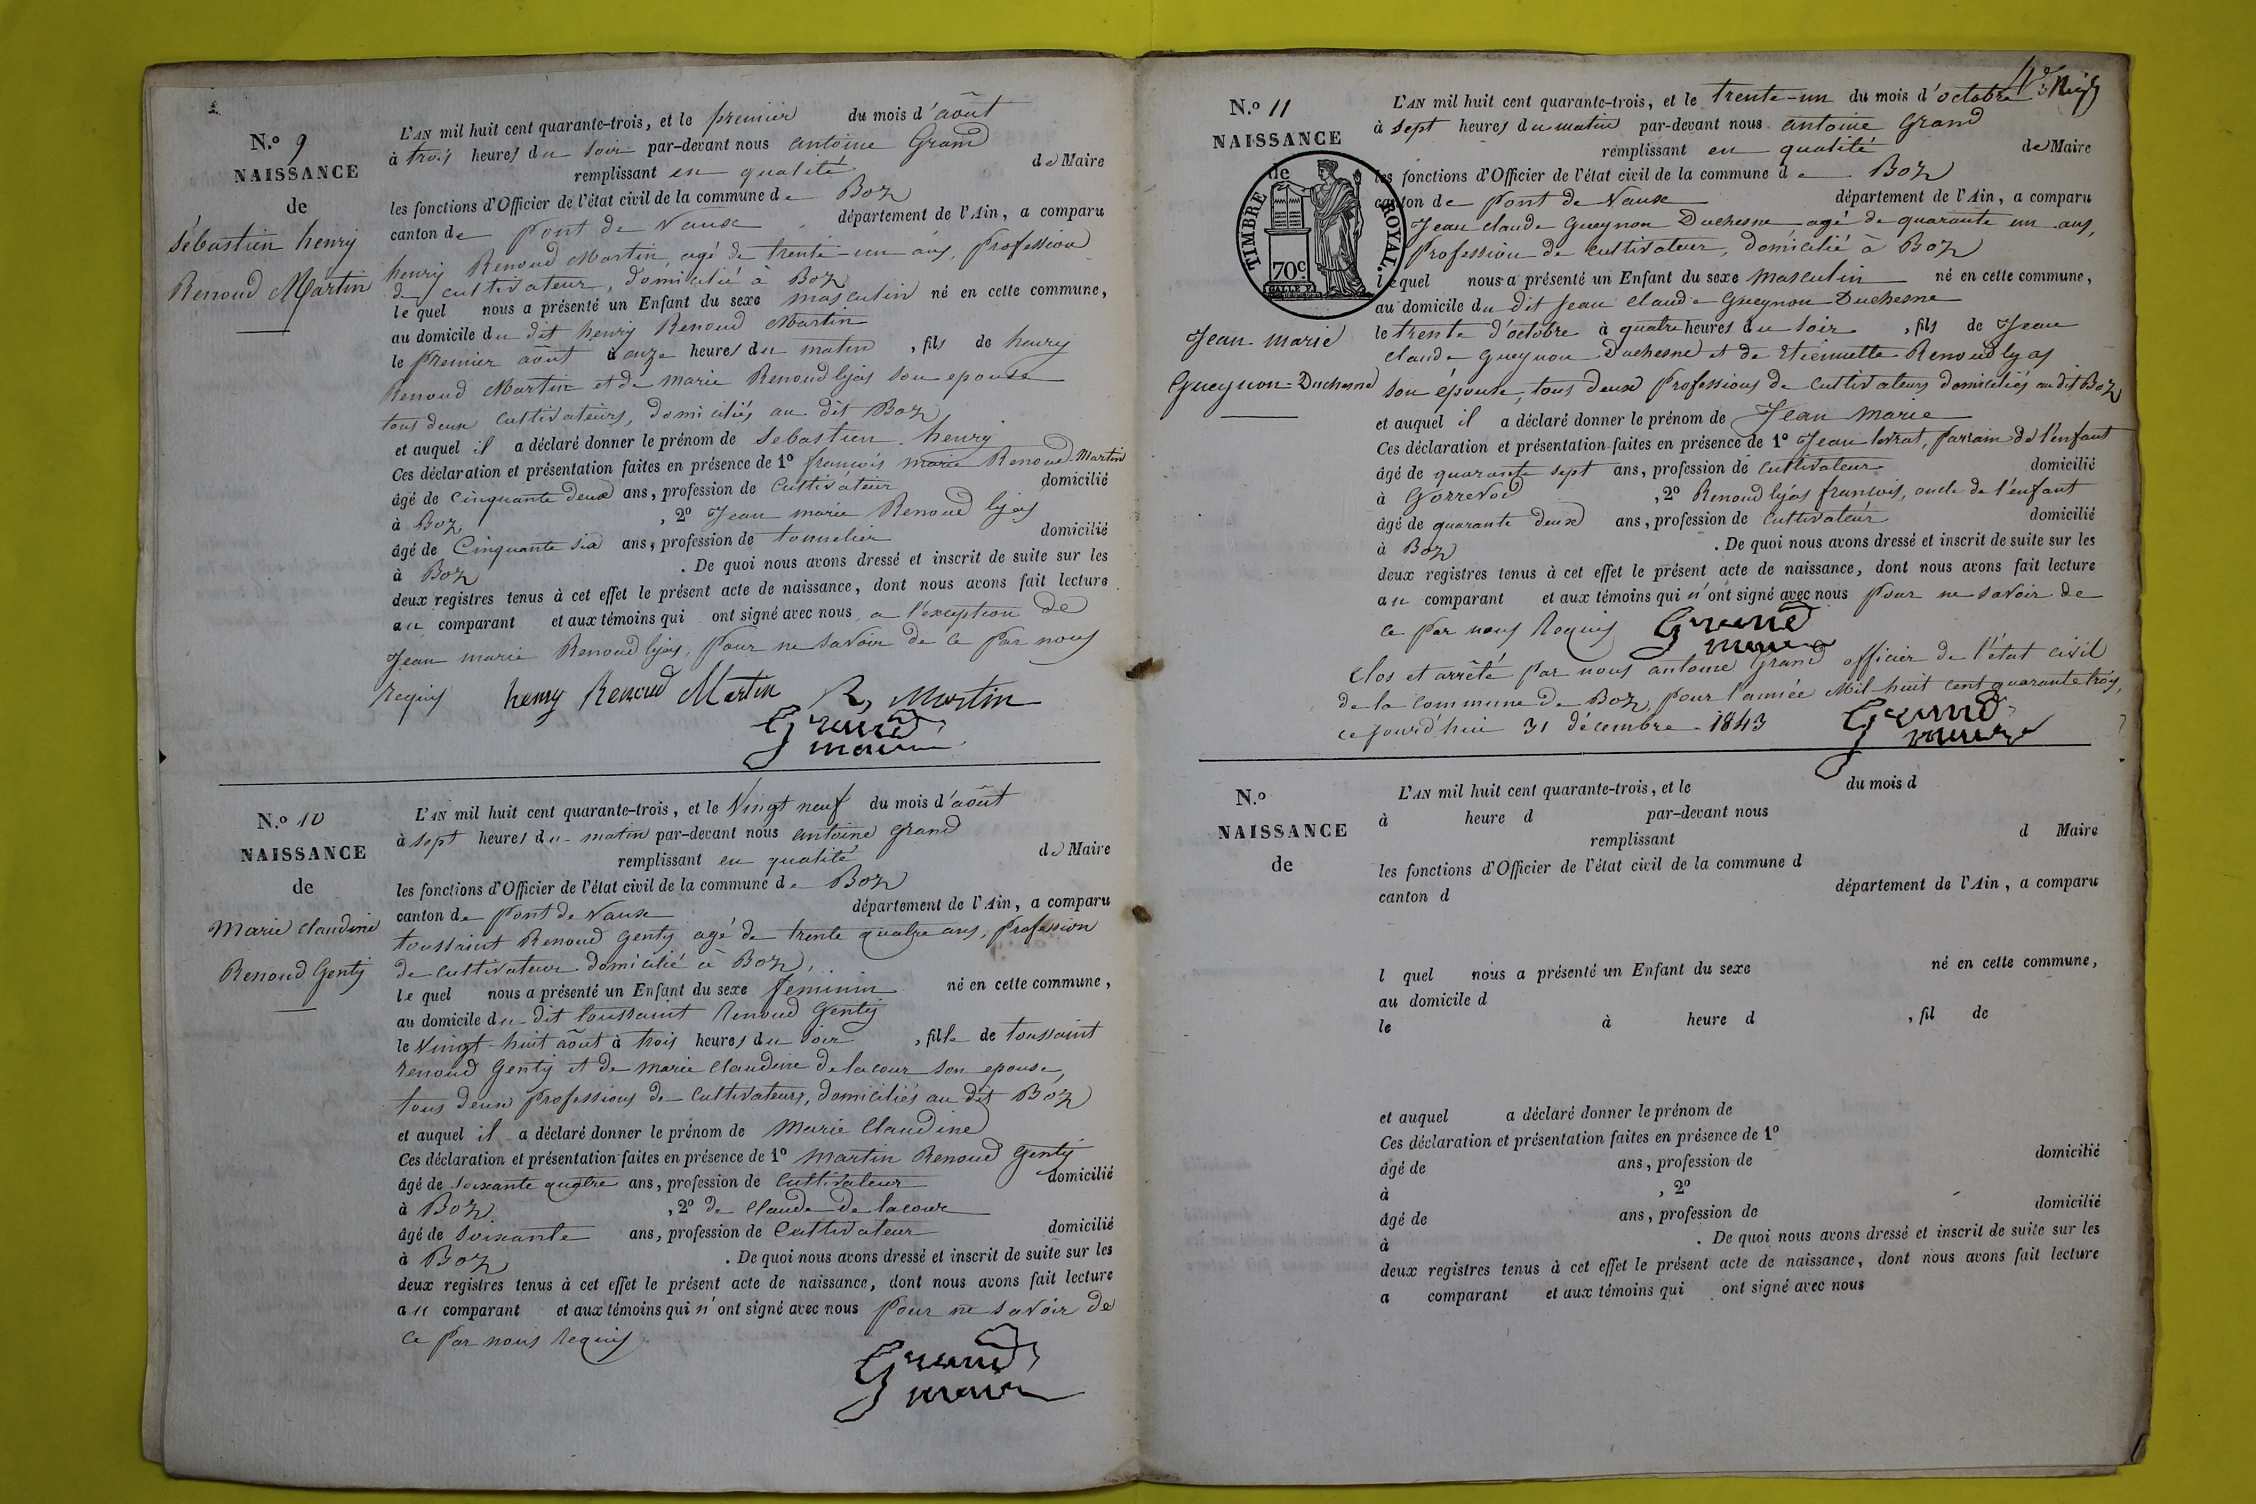 N.º 9
NAISSANCE
de
Sébastien henry
Renoud Martin
L'AN mil huit cent quarante-trois, et le premier du mois d'août
à trois heures du soir par-devant nous antoine Grand
remplissant en qualité de Maire
les fonctions d'Officier de l'état civil de la commune de Boz
canton de pont de Vaux département de l'Ain, a comparu
henry Renoud Martin, agé de trente-un ans, profession
de cultivateur, domicilié à Boz
le quel nous a présenté un Enfant du sexe masculin né en cette commune,
au domicile du dit henry Renoud Martin
le premier août à onze heures du matin, fils de henry
Renoud Martin et de marie Renoud lyjas son epouse
tous deux cultivateurs, domiciliés au dit Boz
et auquel il a déclaré donner le prénom de Sebastien henry
Ces déclaration et présentation faites en présence de 1º francois marie Renoud-Martin
âgé de cinquante deux ans, profession de cultivateur domicilié
à Boz, 2º Jean marie Renoud lyjas
âgé de Cinquante six ans, profession de tonnelier domicilié
à Boz. De quoi nous avons dressé et inscrit de suite sur les
deux registres tenus à cet effet le présent acte de naissance, dont nous avons fait lecture
au comparant et aux témoins qui ont signé avec nous a l'exception de
Jean marie Renoud lyjas, pour ne savoir de ce par nous
requis henry Renoud Martin R, Martin
Grand
maire
N.º 10
NAISSANCE
de
Marie claudine
Renoud Genty
L'AN mil huit cent quarante-trois, et le Vingt neuf du mois d'août
à sept heures du matin par-devant nous antoine grand
remplissant en qualité de Maire
les fonctions d'Officier de l'état civil de la commune de Boz
canton de pont de Vaux département de l'Ain, a comparu
toussaint Renoud Genty agé de trente quatre ans, profession
de cultivateur domicilié à Boz,
le quel nous a présenté un Enfant du sexe feminin né en cette commune,
au domicile du dit toussaint Renoud Genty
le Vingt-huit août à trois heures du soir, fille de toussaint
renoud Genty et de marie claudine delacour son epouse,
tous deux professions de cultivateurs, domiciliés au dit Boz
et auquel il a déclaré donner le prénom de Marie Claudine
Ces déclaration et présentation faites en présence de 1º Martin Renoud Genty
âgé de soixante quatre ans, profession de Cultivateur domicilié
à Boz, 2º de claude de lacour
âgé de soixante ans, profession de Cultivateur domicilié
à Boz. De quoi nous avons dressé et inscrit de suite sur les
deux registres tenus à cet effet le présent acte de naissance, dont nous avons fait lecture
au comparant et aux témoins qui n'ont signé avec nous pour ne savoir de
ce par nous requis
Grand
maire
N.º 11
NAISSANCE
de
TIMBRE ROYAL.
70 c
Jean marie
Gueynon-Duchesne
L'AN mil huit cent quarante-trois, et le trente-un du mois d'octobre
à sept heures du matin par-devant nous antoine Grand
remplissant en qualité de Maire
les fonctions d'Officier de l'état civil de la commune de Boz
canton de pont de Vaux département de l'Ain, a comparu
Jean claude Gueynon Duchesne agé de quarante un ans,
profession de cultivateur, domicilié à Boz
lequel nous a présenté un Enfant du sexe masculin né en cette commune,
au domicile du dit Jean claude Gueynon Duchesne
le trente d'octobre à quatre heures du soir, fils de Jean
claude gueynon Duchesne et de Etiennette Renoud lyas
son épouse, tous deux professions de cultivateurs domiciliés au dit Boz
et auquel il a déclaré donner le prénom de Jean Marie
Ces déclaration et présentation faites en présence de 1º Jean levrat, parrain de l'enfant
âgé de quarante sept ans, profession de cultivateur domicilié
à Gorrevod, 2º Renoud lyjas francois, oncle de l'enfant
âgé de quarante deux ans, profession de cultivateur domicilié
à Boz. De quoi nous avons dressé et inscrit de suite sur les
deux registres tenus à cet effet le présent acte de naissance, dont nous avons fait lecture
au comparant et aux témoins qui n'ont signé avec nous pour ne savoir de
ce par nous Requis Grand
maire
Clos et arrêté par nous antoine Grand officier de l'état civil
de la commune de Boz, pour l'année Mil huit cent quarante trois,
ce jourd'hui 31 décembre 1843 Grand
maire
N.º
NAISSANCE
de
L'AN mil huit cent quarante-trois, et le du mois d
à heure d par-devant nous
remplissant d Maire
les fonctions d'Officier de l'état civil de la commune d
canton d département de l'Ain, a comparu
l quel nous a présenté un Enfant du sexe né en cette commune,
au domicile d
le à heure d , fil de
et auquel a déclaré donner le prénom de
Ces déclaration et présentation faites en présence de 1º
âgé de ans, profession de domicilié
à , 2º
âgé de ans, profession de domicilié
à . De quoi nous avons dressé et inscrit de suite sur les
deux registres tenus à cet effet le présent acte de naissance, dont nous avons fait lecture
a comparant et aux témoins qui ont signé avec nous